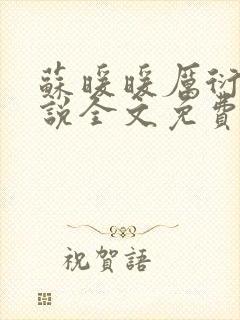 蘇暖暖厲衍
說全文免費
祝賀語